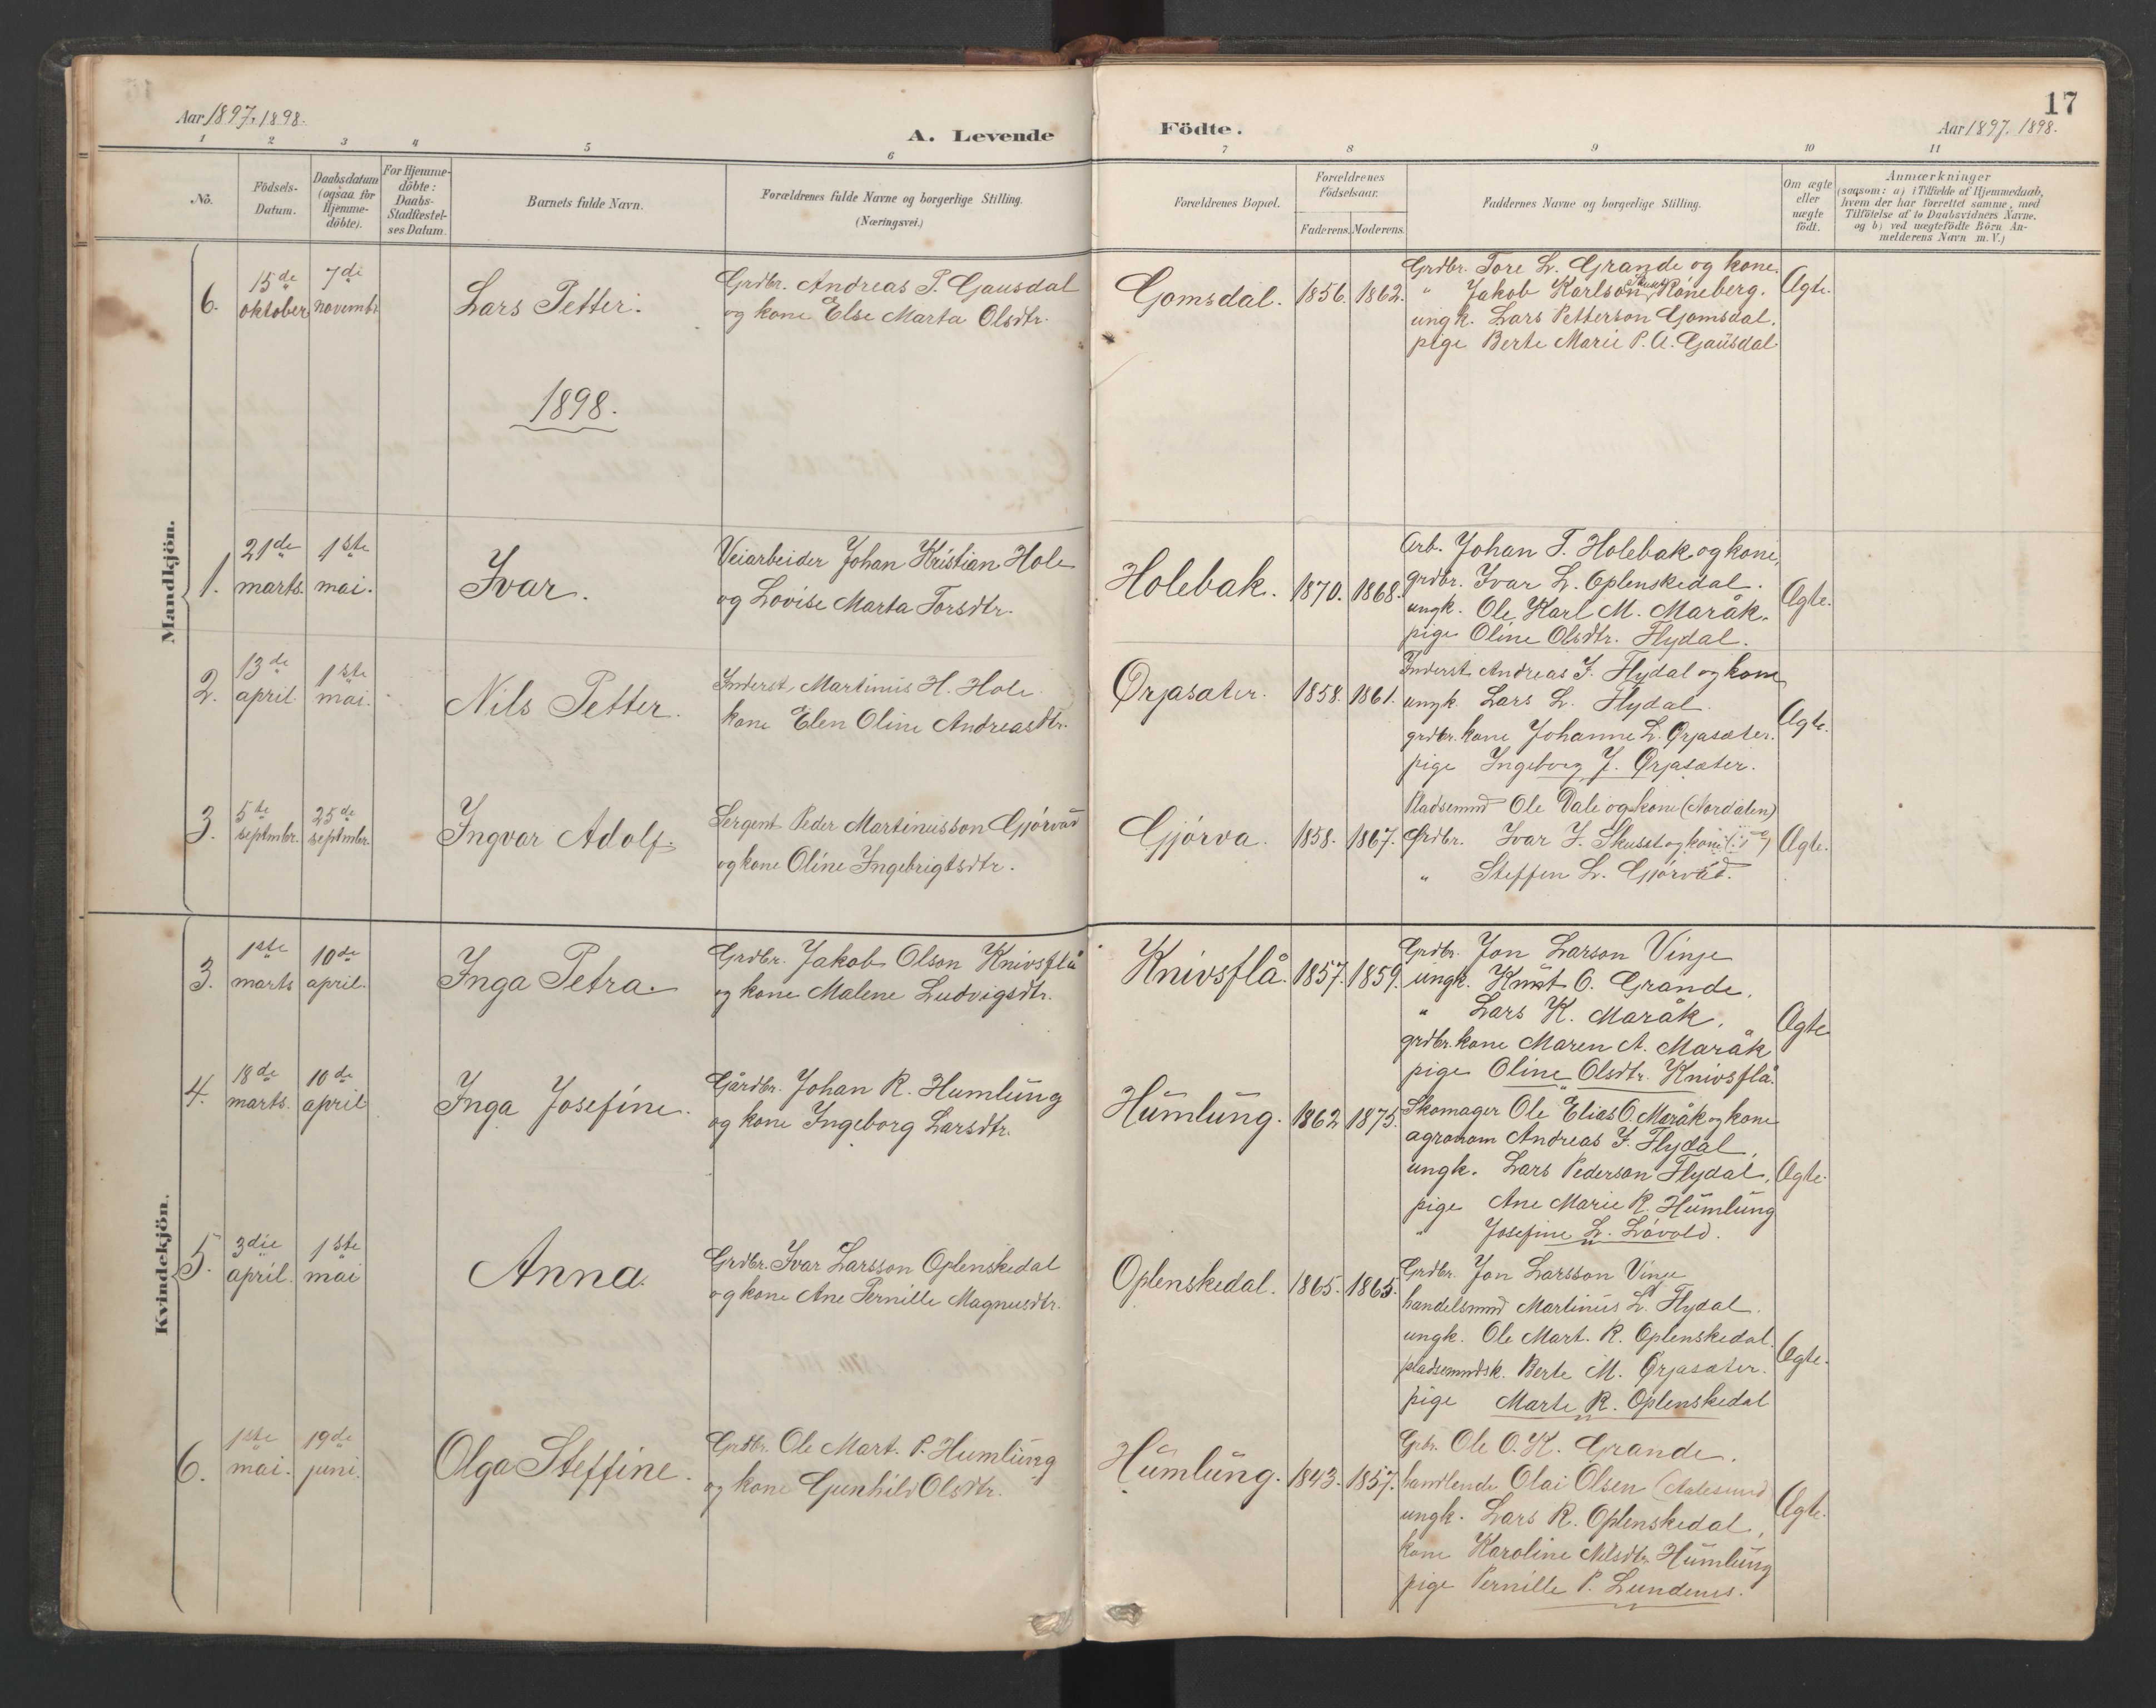 17
Aar 1897. 1898.
A. Levende Födte.
Aar 1897. 1898.
1 2 3 4 5 6 7 8 9 10 11
No.
Födsels-
Datum.
Daabsdatum
(ogsaa for
Hjemme-
döbte).
For Hjemme-
döbte:
Daabs-
Stadfæstel-
ses Datum.
Barnets fulde Navn.
Forældrenes fulde Navne og borgerlige Stilling.
(Næringsvei.)
Forældrenes Bopæl.
Forældrenes
Födselsaar.
Faderens. Moderens.
Faddernes Navne og borgerlige Stilling.
Om ægte
eller
uægte
födt.
Anmærkninger
(saasom: a) i Tilfælde af Hjemmedaab,
hvem der har forrettet samme, med
Tilföielse af to Daabsvidners Navne.
og b) ved uægtefödte Börn An-
melderens Navn m. V.)
Mandkjön.
6.
15de
oktober
7de
novembr.
Lars Petter.
Grdbr. Andreas P. Gausdal
og kone Else Marta Olsdtr.
Gomsdal. 1856. 1862.
Grdbr. Tore L. Grande og kone.
" Jakob Karlson Röneberg.
ungk. Lars Petterson Gomsdal.
pige Berte Marie P. A. Gaüsdal
Ægte.
1898.
1.
21de
marts.
1ste
mai.
Ivar.
Veiarbeider Johan Kristian Hole
og Lovise Marta Torsdtr.
Holebak. 1870. 1868.
Arb. Johan T. Holebak og kone,
grdbr. Ivar L. Oplenskedal.
ungk. Ole Karl M. Maråk.
pige Oline Olsdtr. Flydal.
Ægte.
2.
13de
april.
1ste
mai.
Nils Petter.
Inderst Martinus H. Hole.
kone Elen Oline Andreasdtr.
Ørjasæter. 1858. 1861.
Inderst Andreas J. Flydal og kone
ungk. Lars L. Flydal.
grdbr. kone Johanne L. Ørjasæter.
pige Ingeborg J. Ørjasæter.
Ægte.
3.
5te
septmbr.
25de
septmbr.
Ingvar Adolf.
Sergent Peder Martinusson Gjörvad
og kone Oline Ingebrigtsdtr.
Gjörva. 1858. 1867.
Pladsemnd Ole Dale og kone (Nordalen)
Grdbr. Ivar J. Skuset og kone
" Steffen L. Gjörvad.
Ægte.
Kvindekjön.
3.
1ste
marts
10de
april.
Inga Petra.
Grdbr. Jakob Olson Knivsflå
og kone Malene Ludvigsdtr.
Knivsflå. 1857. 1859.
Grdbr. Jon Larson Vinje
ungk. Knüt O. Grande.
" Lars K. Maråk.
grdbr. kone Maren A. Maråk
pige Oline Olsdtr. Knivsflå.
Ægte
4.
18de
marts.
10de
april
Inga Josefine.
Gårdbr. Johan R. Humlüng
og kone Ingeborg Larsdtr.
Hümlüng. 1862 1875.
Skomager Ole Elias O. Maråk og kone
agronom Andreas J. Flydal,
ungk. Lars Pederson Flydal,
pige Ane Marie R. Hümlüng
" Josefine L. Lövold.
Ægte.
5.
3die
april.
1ste
mai
Anna.
Grdbr. Ivar Larsson Oplenskedal
og kone Ane Pernille Magnusdtr.
Oplenskedal. 1865. 1865.
Grdbr. Jon Larsson Vinje
handelsmnd Martinus L. Flydal.
ungk. Ole Mart. R. Oplenskedal.
pladsemndsk. Berte M. Ørjasæter.
pige Marte R. Oplenskedal
Ægte.
6.
1ste
mai.
19de
juni.
Olga Steffine.
Grdbr. Ole Mart. P. Humlüng
og kone Gunhild Olsdtr.
Hümlüng. 1843. 1857.
Grbr. Ole O. K. Grande.
handlende Olai Olsen (Aalesund
ungk. Lars R. Oplenskedal,
kone Karoline Nilsdtr. Hümlüng
pige Pernille P. Lundenes.
Ægte.